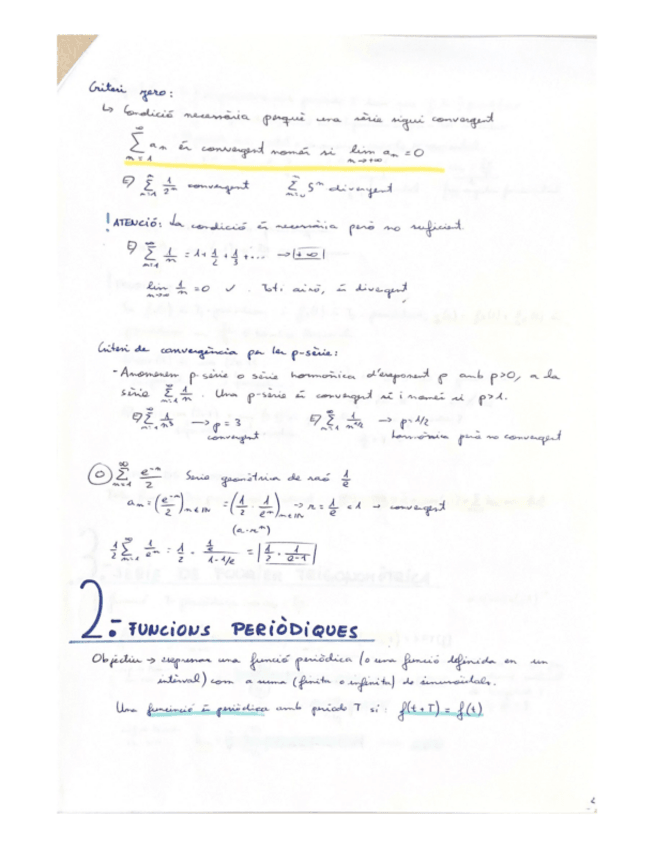 Criteri zero:
↳ Condició necessària perquè una sèrie sigui convergent
∞∑n=1 an és convergent només si lim n→+∞ an = 0
E) ∞∑n=1 1/2ⁿ convergent ∞∑n=0 5ⁿ divergent
! ATENCIÓ: La condició és necessària però no suficient.
E) ∞∑n=1 1/n = 1 + 1/2 + 1/3 + ... → |+∞|
lim n→∞ 1/n = 0 ✓. Tot i això, és divergent,
Criteri de convergència per les p-sèrie:
- Anomenem p-sèrie o sèrie harmònica d'exponent p amb p>0, a la
sèrie ∞∑n=1 1/n. Una p-sèrie és convergent si i només si, p>1.
E) ∞∑n=1 1/n³ → p = 3 E) ∞∑n=1 1/n^1/2 → p = 1/2
convergent harmònica però no convergent
O) ∞∑n=1 e⁻ⁿ/2 Serie geomètrica de raó 1/e
an = (e⁻ⁿ/2) n∈ℕ = (1/2 · 1/eⁿ) n∈ℕ → r = 1/e < 1 → convergent
(a·rⁿ)
1/2 ∑n=1 1/eⁿ = 1/2 · (1/e)/(1-1/e) = |1/2 · 1/(e-1)|
2. FUNCIONS PERIÒDIQUES
Objectiu → expressar una funció periòdica (o una funció definida en un
interval) com a suma (finita o infinita) de sinusoïdals.
Una funció és periòdica amb periode T si: f(t+T) = f(t)